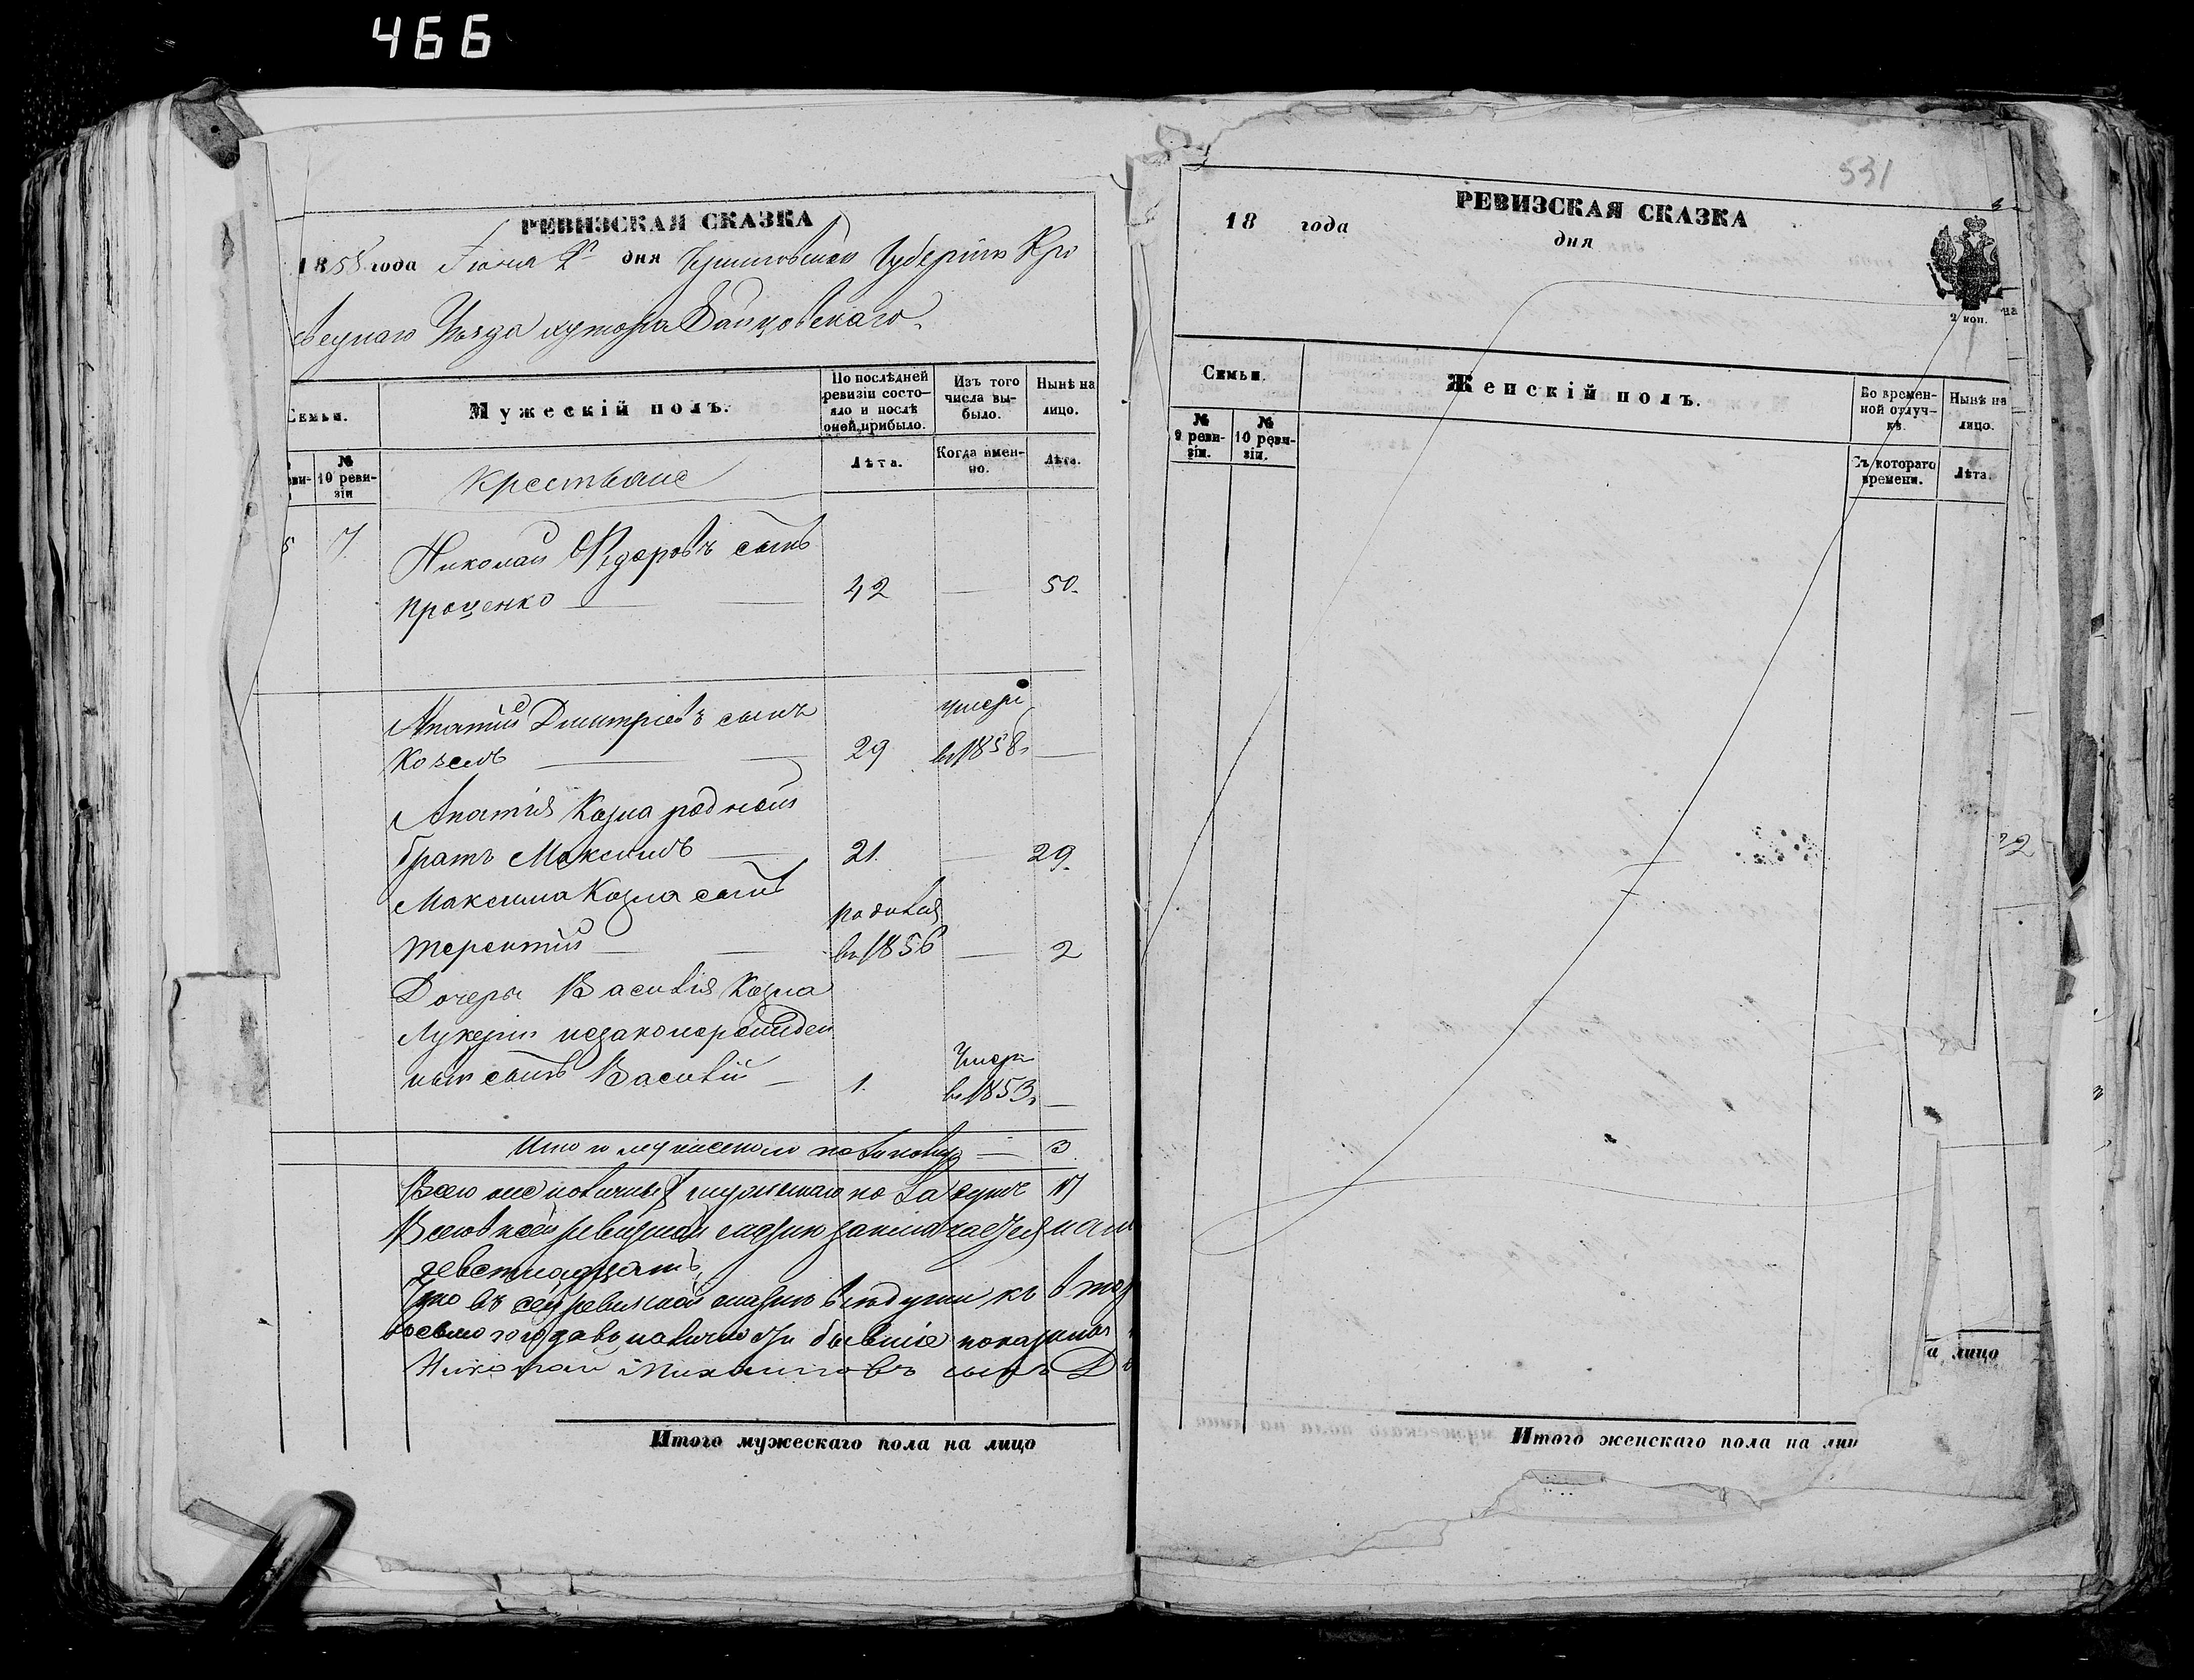 466
РЕВИЗСКАЯ СКАЗКА
1858 года Июня дня Черниговской Губерніи Кро
левецкаго Уѣзда хутора
Семьи.
Мужескій полъ.
По послѣдней ревизіи состояло и послѣ оной прибыло.
Изъ того числа выбыло.
Нынѣ на лицо.
№ 10 ревизіи
Крестьяне
Лѣта.
Когда именно.
Лѣта.
5 7 Николай Федоровъ сынъ
Проценко 42 — 50.
Ипатій Дмитріевъ сынъ умеръ
Козелъ 29 въ 1858 —
Ипатія Козла родной
братъ Максимъ 21. — 29.
Максима Козла сынъ родился
Терентій въ 1856 — 2
Дочери Василія Козла
Лукеріи незаконорожден
ный сынъ Василій 1. умеръ въ 1853 —
Итого мужескаго на лицо — 3
Всего наличныхъ мужескаго пола душъ 17
Всего въ сей ревизской сказкѣ заключается
Что въ сей ревизской сказкѣ
восьмаго года въ наличности бывшіе показаны
Николай Михайловъ сынъ
Итого мужескаго пола на лицо
531
РЕВИЗСКАЯ СКАЗКА
18 года дня
2 коп.
на
Семьи.
Женскій полъ.
Во временной отлучкѣ.
Нынѣ на лицо.
№ 9 ревизіи.
№ 10 ревизіи.
Съ котораго времени.
Лѣта.
а лицо
Итого женскаго пола на лиц